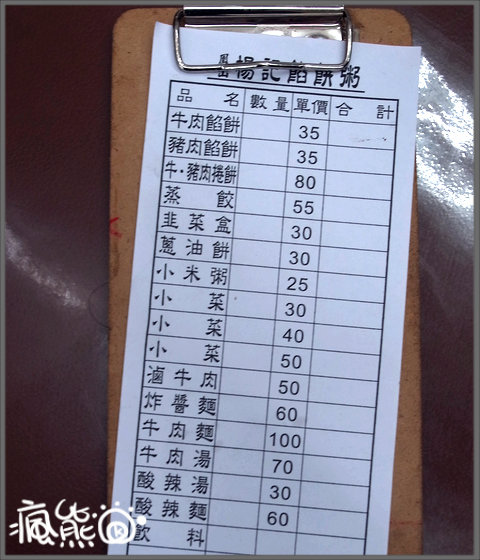 楊記餡餅粥
品名 數量 單價 合計
牛肉餡餅 35
豬肉餡餅 35
牛‧豬肉捲餅 80
蒸餃 55
韭菜盒 30
蔥油餅 30
小米粥 25
小菜 30
小菜 40
小菜 50
滷牛肉 50
炸醬麵 60
牛肉麵 100
牛肉湯 70
酸辣湯 30
酸辣麵 60
飲料
瘋熊